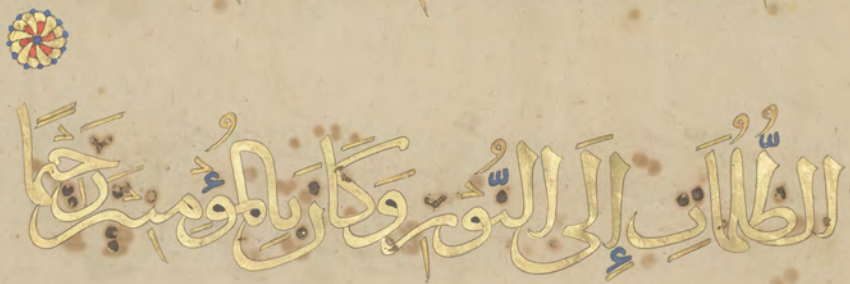 الظُّلُمَاتِ إِلَى النُّورِ وَكَانَ بِالْمُؤْمِنِينَ رَحِيمًا